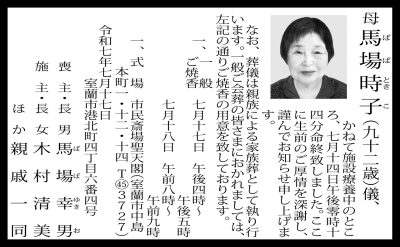 母 馬場時子(九十二歳)儀
ばばときこ
かねて施設療養中のとこ
ろ、七月十四日午後零時十
四分命終致しました。ここ
に生前のご厚情を深謝し、
謹んでお知らせ申し上げま
す。
なお、葬儀は親族による家族葬として執り行
います。一般ご会葬の皆さまにおかれましては、
左記の通りご焼香の用意を致しております。
一、一般ご焼香
七月十七日 午後四時～午後五時
七月十八日 午前八時～午前九時
一、式場 市民斎場聖天閣(室蘭市中島
本町一・十二・十四 T㊺3727)
令和七年七月十七日
室蘭市港北町四丁目六番四号
喪主・長男 馬場幸男
ばばゆきお
施主・長女 木村清美
ほか 親戚一同